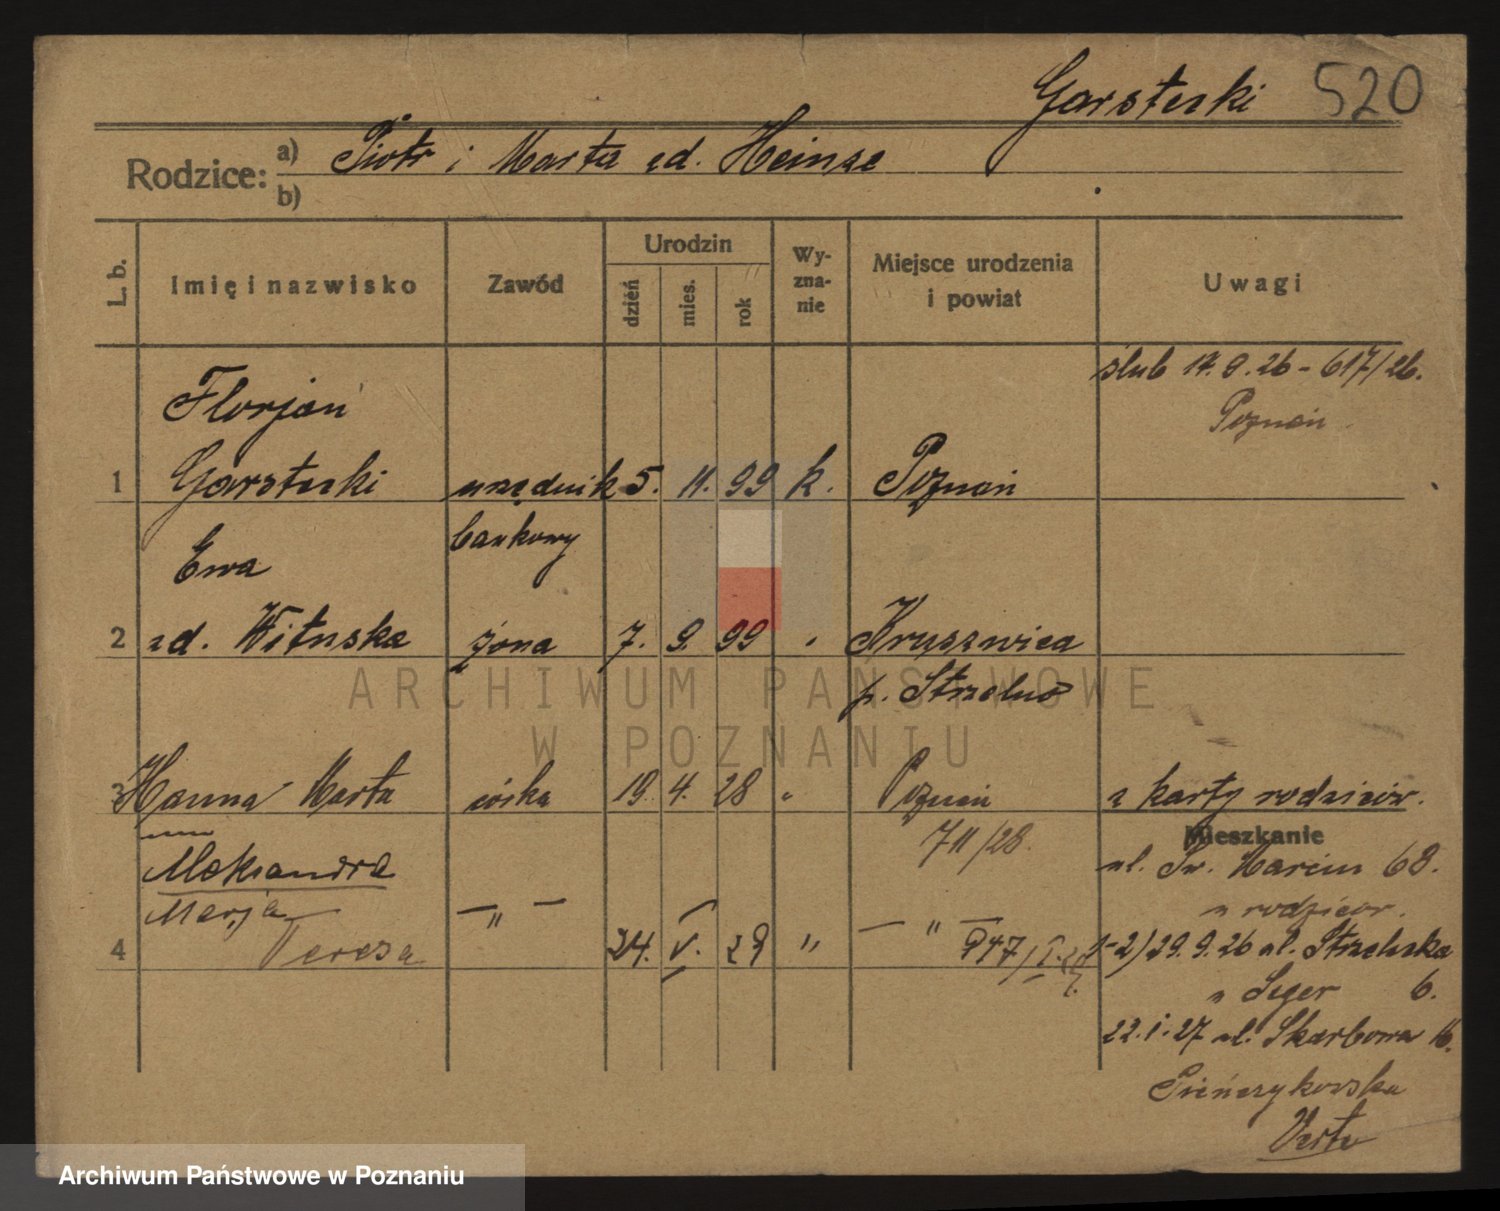 Garstecki 520
Rodzice: a) Piotr i Marta zd. Heinze
b)
L. b. Imię i nazwisko Zawód Urodzin dzień mies. rok Wyznanie Miejsce urodzenia i powiat Uwagi
ślub 14.9.26 - 617/26.
Poznań
Florjan
1 Garstecki urzędnik 5. 11. 99 k. Poznań
bankowy
Ewa
2 zd. Wituska żona 7. 9. 99 " Kruszwica
p. Strzelno
3 Hanna Marta córka 19. 4. 28 " Poznań z karty rodziców.
711/28.
Mieszkanie
ul. Św. Marcin 68.
Aleksandra
u rodziców.
Marja — " — — " —
4 Teresa 24. V. 29 " 947/V.29. 1-2) 29.9.26 ul. Strzelecka
u Seger 6.
22.1.27 ul. Skarbowa 16.
Pieńczykowska
Verte
ARCHIWUM PAŃSTWOWE
W POZNANIU
Archiwum Państwowe w Poznaniu